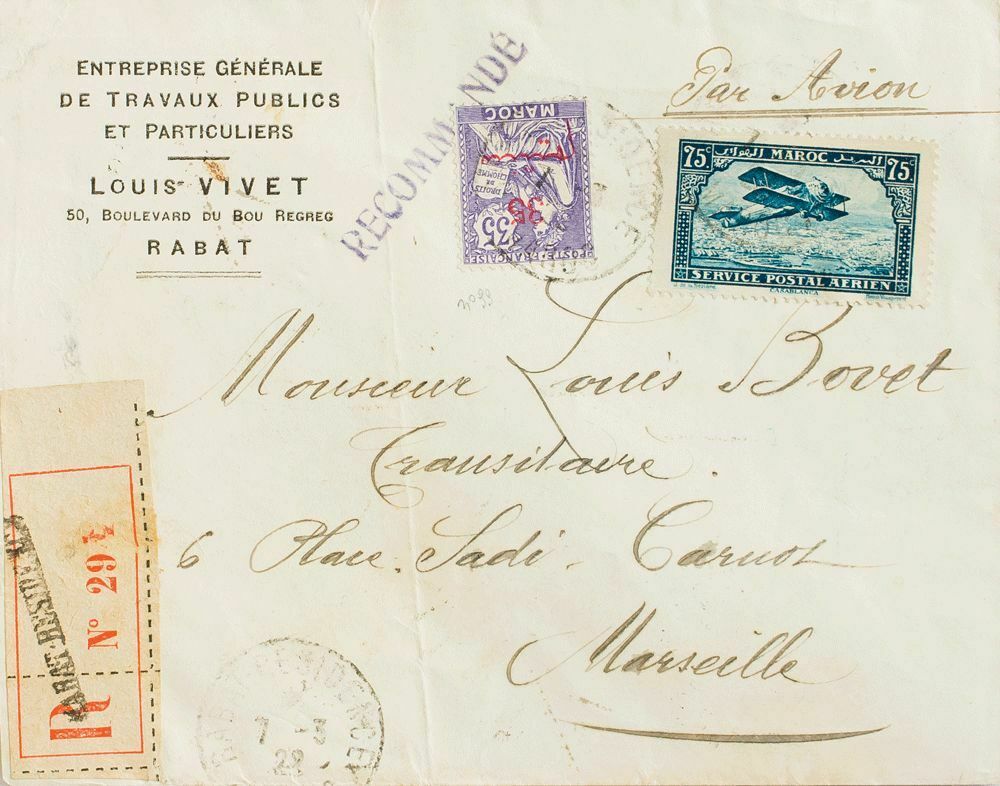 ENTREPRISE GÉNÉRALE
DE TRAVAUX PUBLICS
ET PARTICULIERS
LOUIS VIVET
50, BOULEVARD DU BOU REGREG
RABAT
RECOMMANDÉ
MAROC
DROITS
DE
L'HOMME
35
35
POSTE FRANÇAISE
3099
Par Avion
75c MAROC البريد الهوائي 75c
SERVICE POSTAL AÉRIEN
CASABLANCA
Monsieur Louis Bovet
Transitaire.
6 Place Sadi-Carnot
Marseille
RABAT-RESIDENCE
R N° 291
RABAT RESIDENCE
7 - 3
22